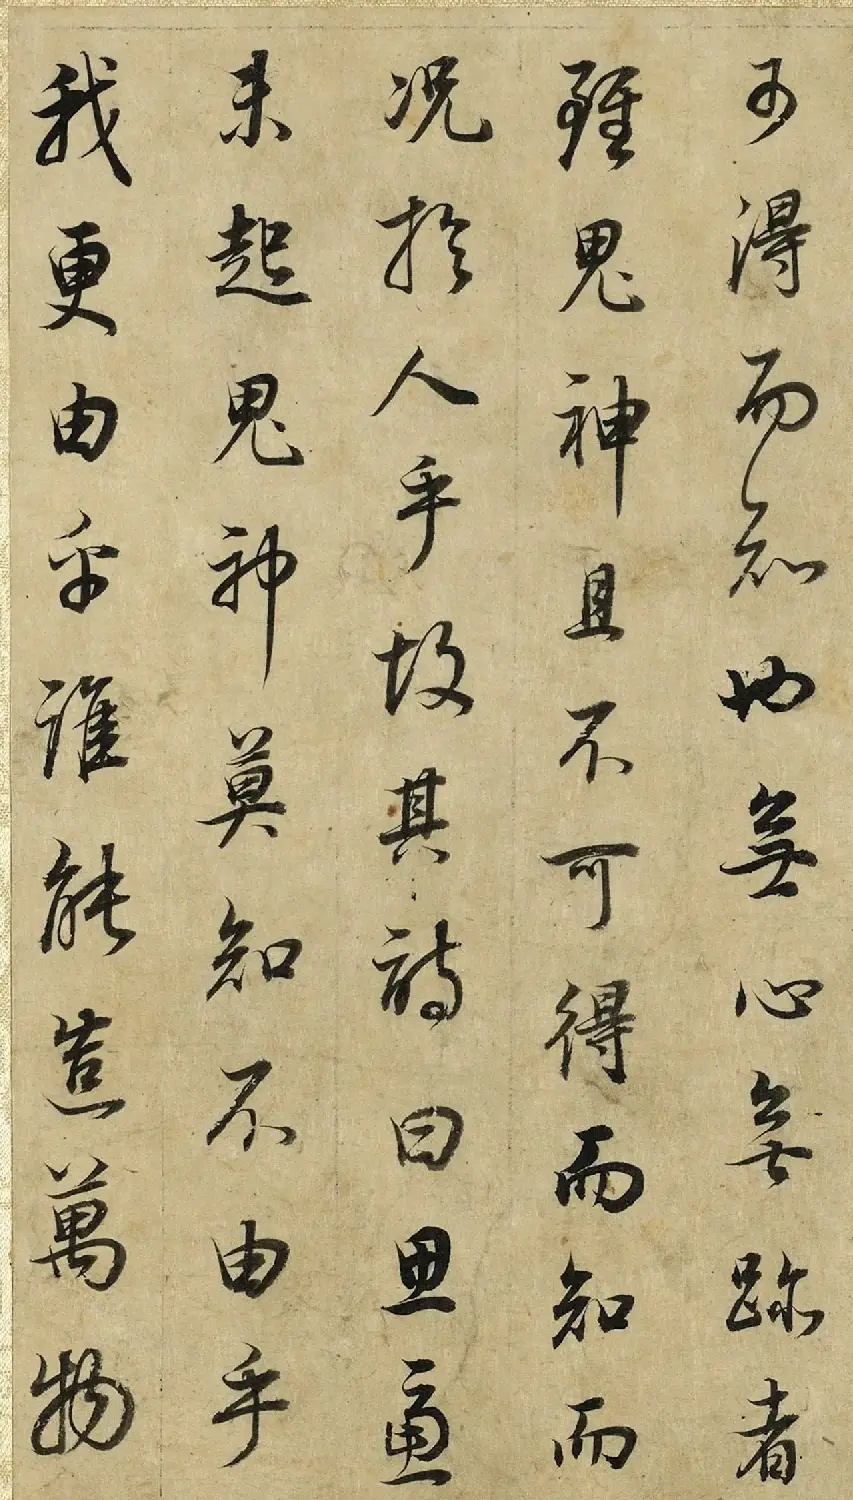 可得而知也無心無跡者
雖鬼神且不可得而知而
況於人乎故其詩曰思慮
未起鬼神莫知不由乎
我更由乎誰能造萬物